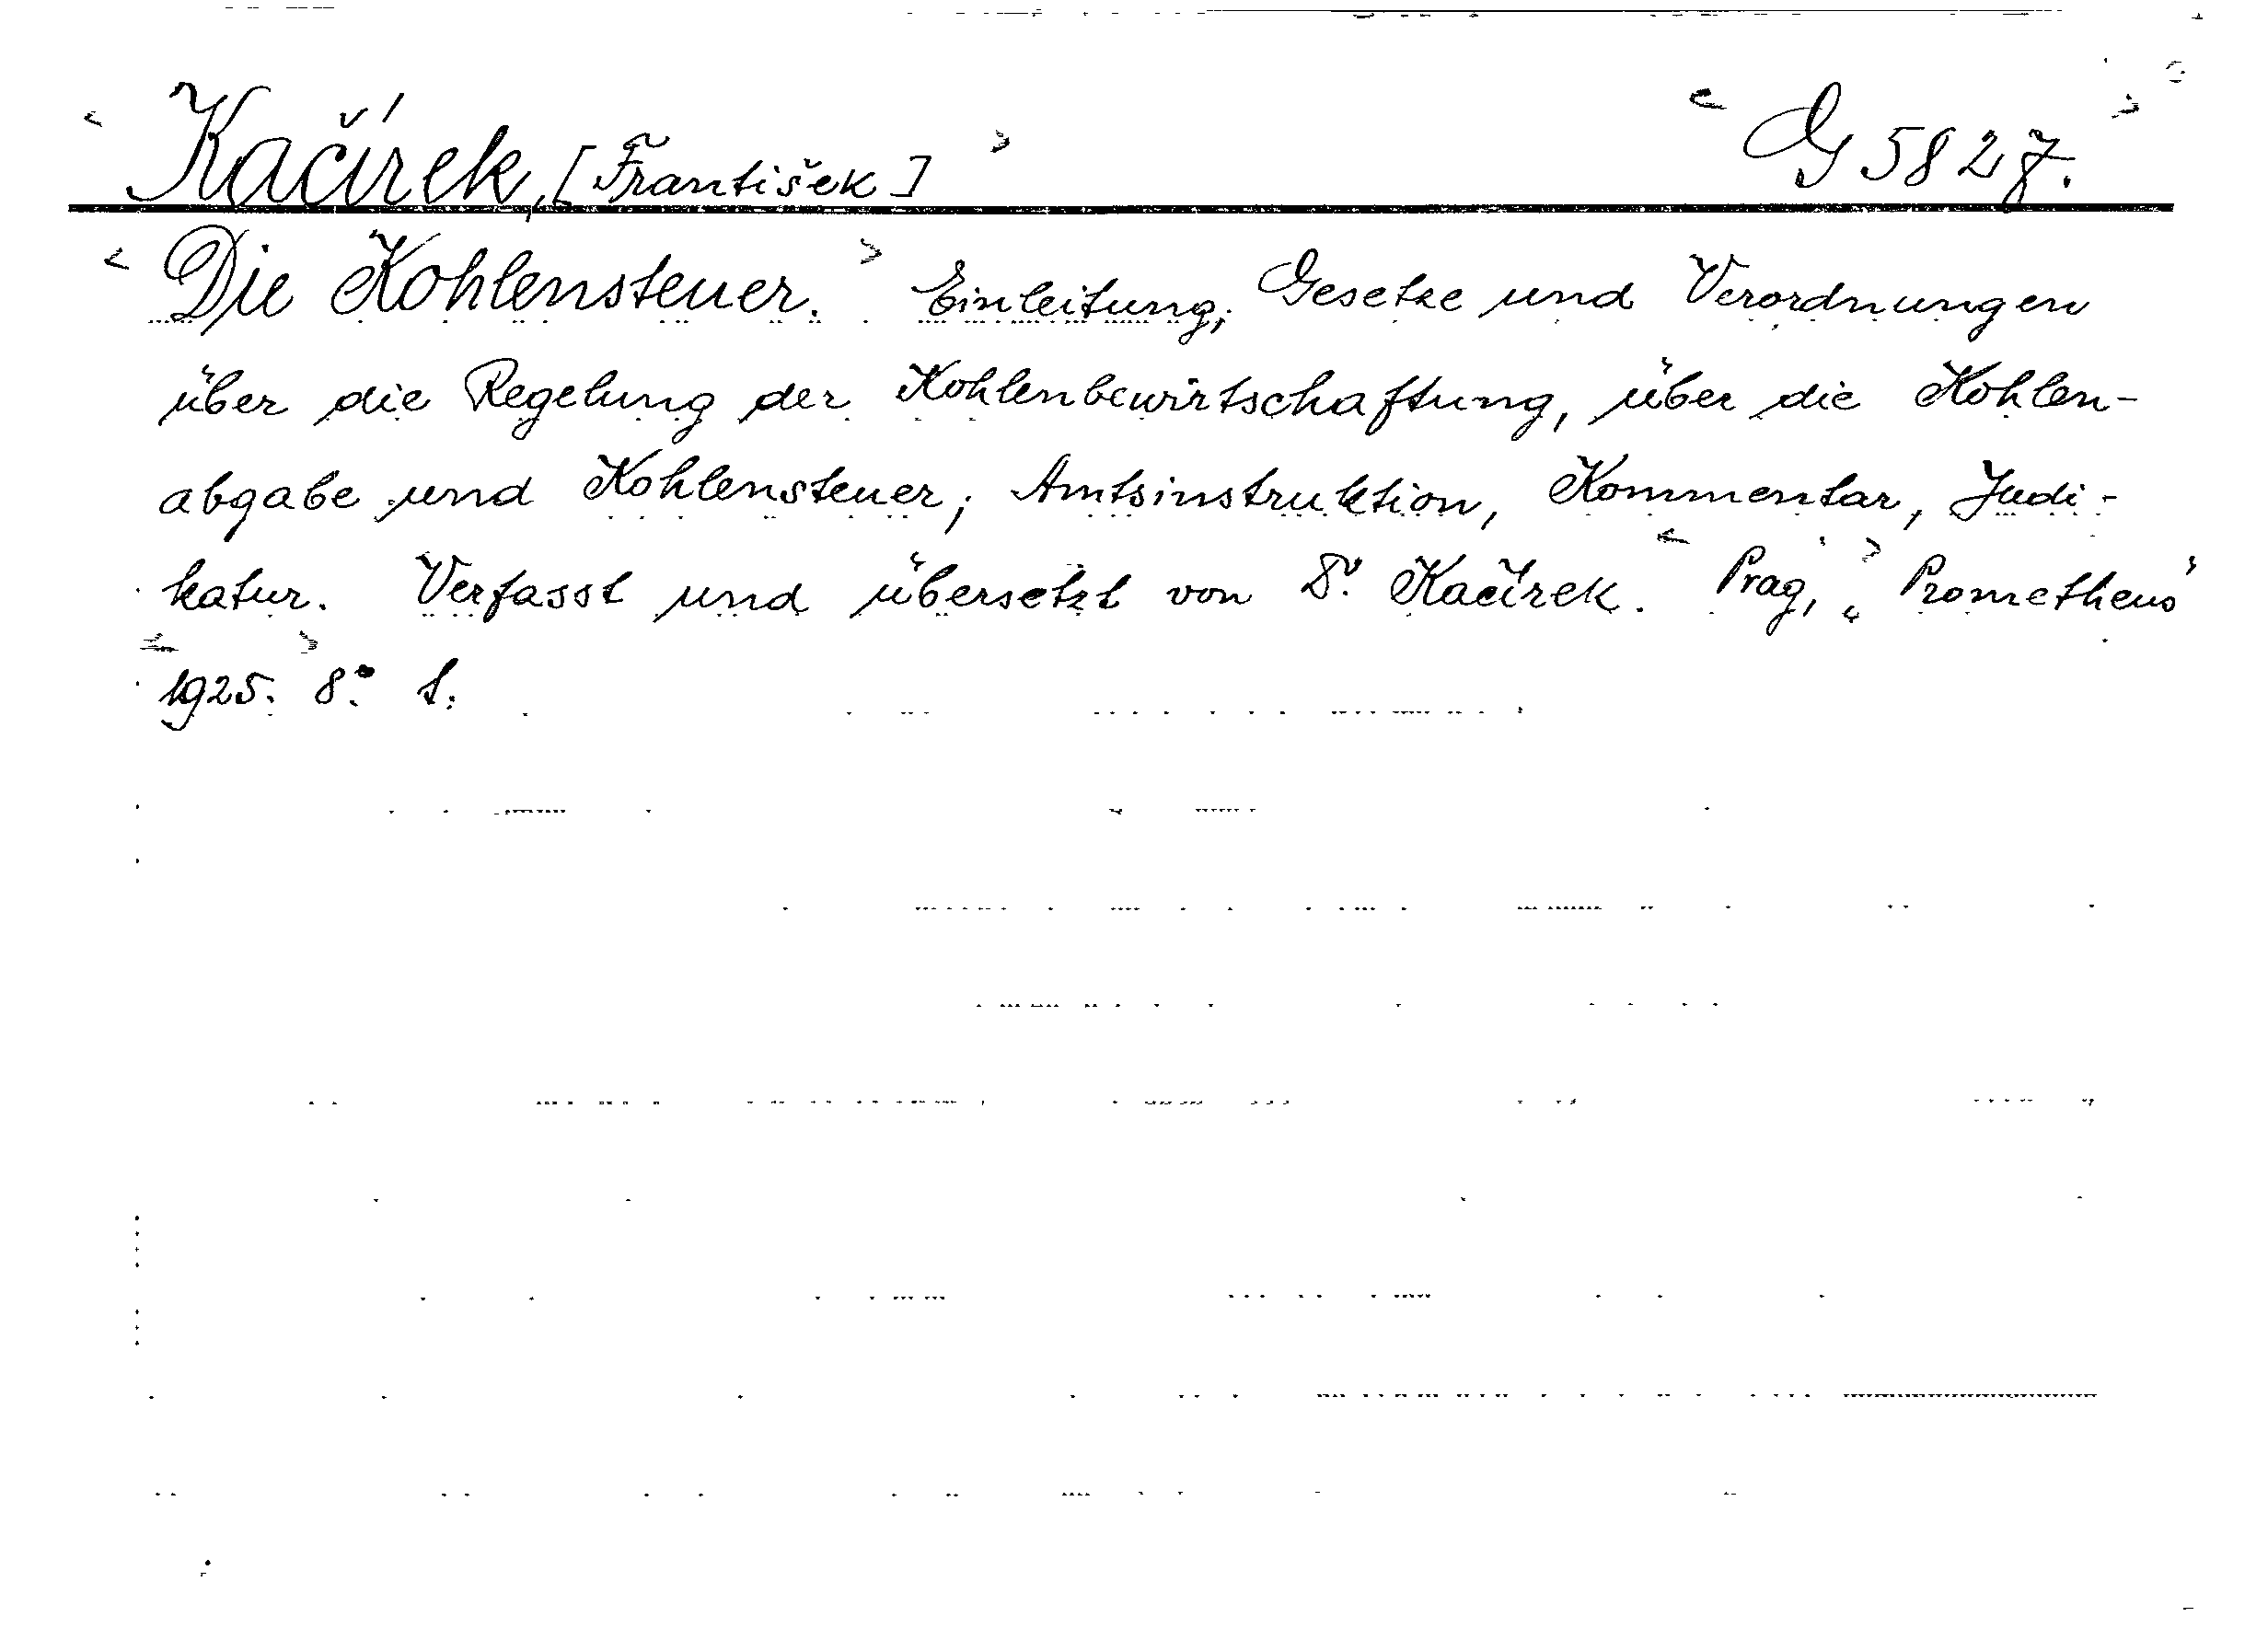 < Kačírek, [František] > < G 5827. >
< Die Kohlensteuer. > Einleitung, Gesetze und Verordnungen
über die Regelung der Kohlenbewirtschaftung, über die Kohlen-
abgabe und Kohlensteuer; Amtsinstruktion, Kommentar, Judi-
katur. Verfasst und übersetzt von Dr. Kačírek. < Prag, > „Prometheus"
< 1925. > 8°. S.